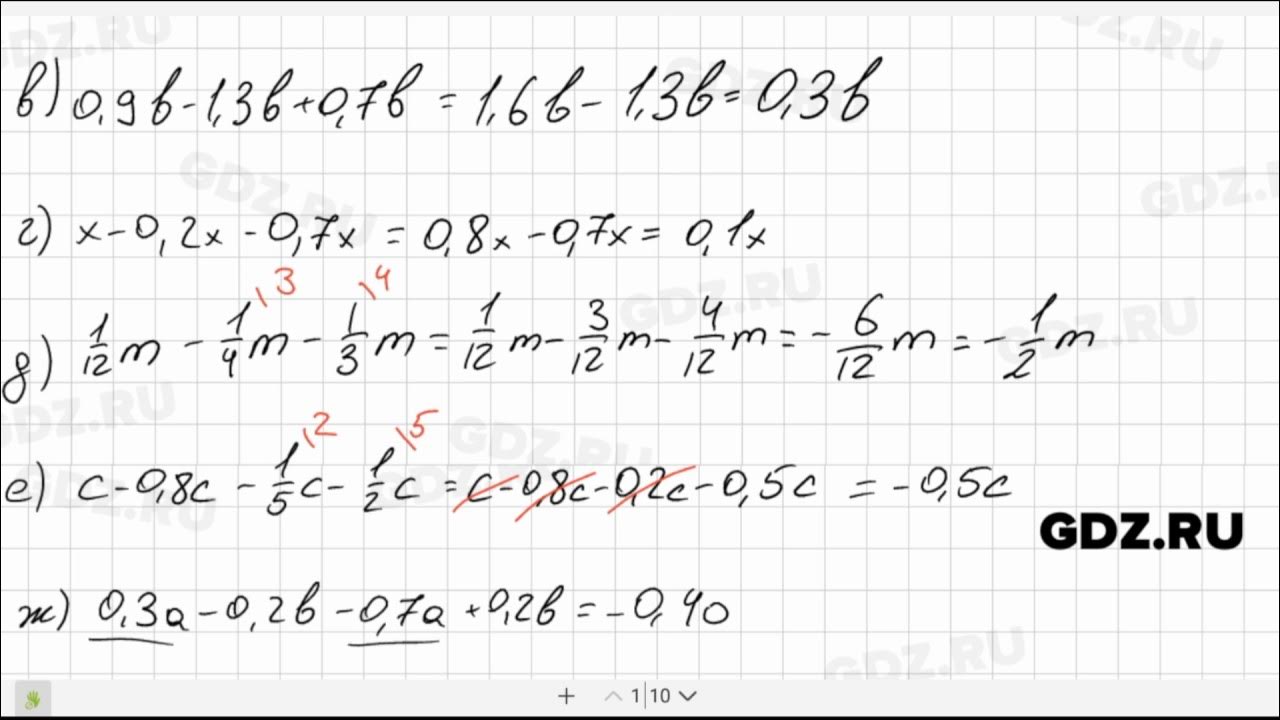 в) 0,9b - 1,3b + 0,7b = 1,6b - 1,3b = 0,3b
г) x - 0,2x - 0,7x = 0,8x - 0,7x = 0,1x
\3 \4
д) 1/12 m - 1/4 m - 1/3 m = 1/12 m - 3/12 m - 4/12 m = - 6/12 m = - 1/2 m
\2 \5
е) c - 0,8c - 1/5 c - 1/2 c = c - 0,8c - 0,2c - 0,5c = -0,5c
GDZ.RU
ж) 0,3a - 0,2b - 0,7a + 0,2b = -0,4a
+ 1|10